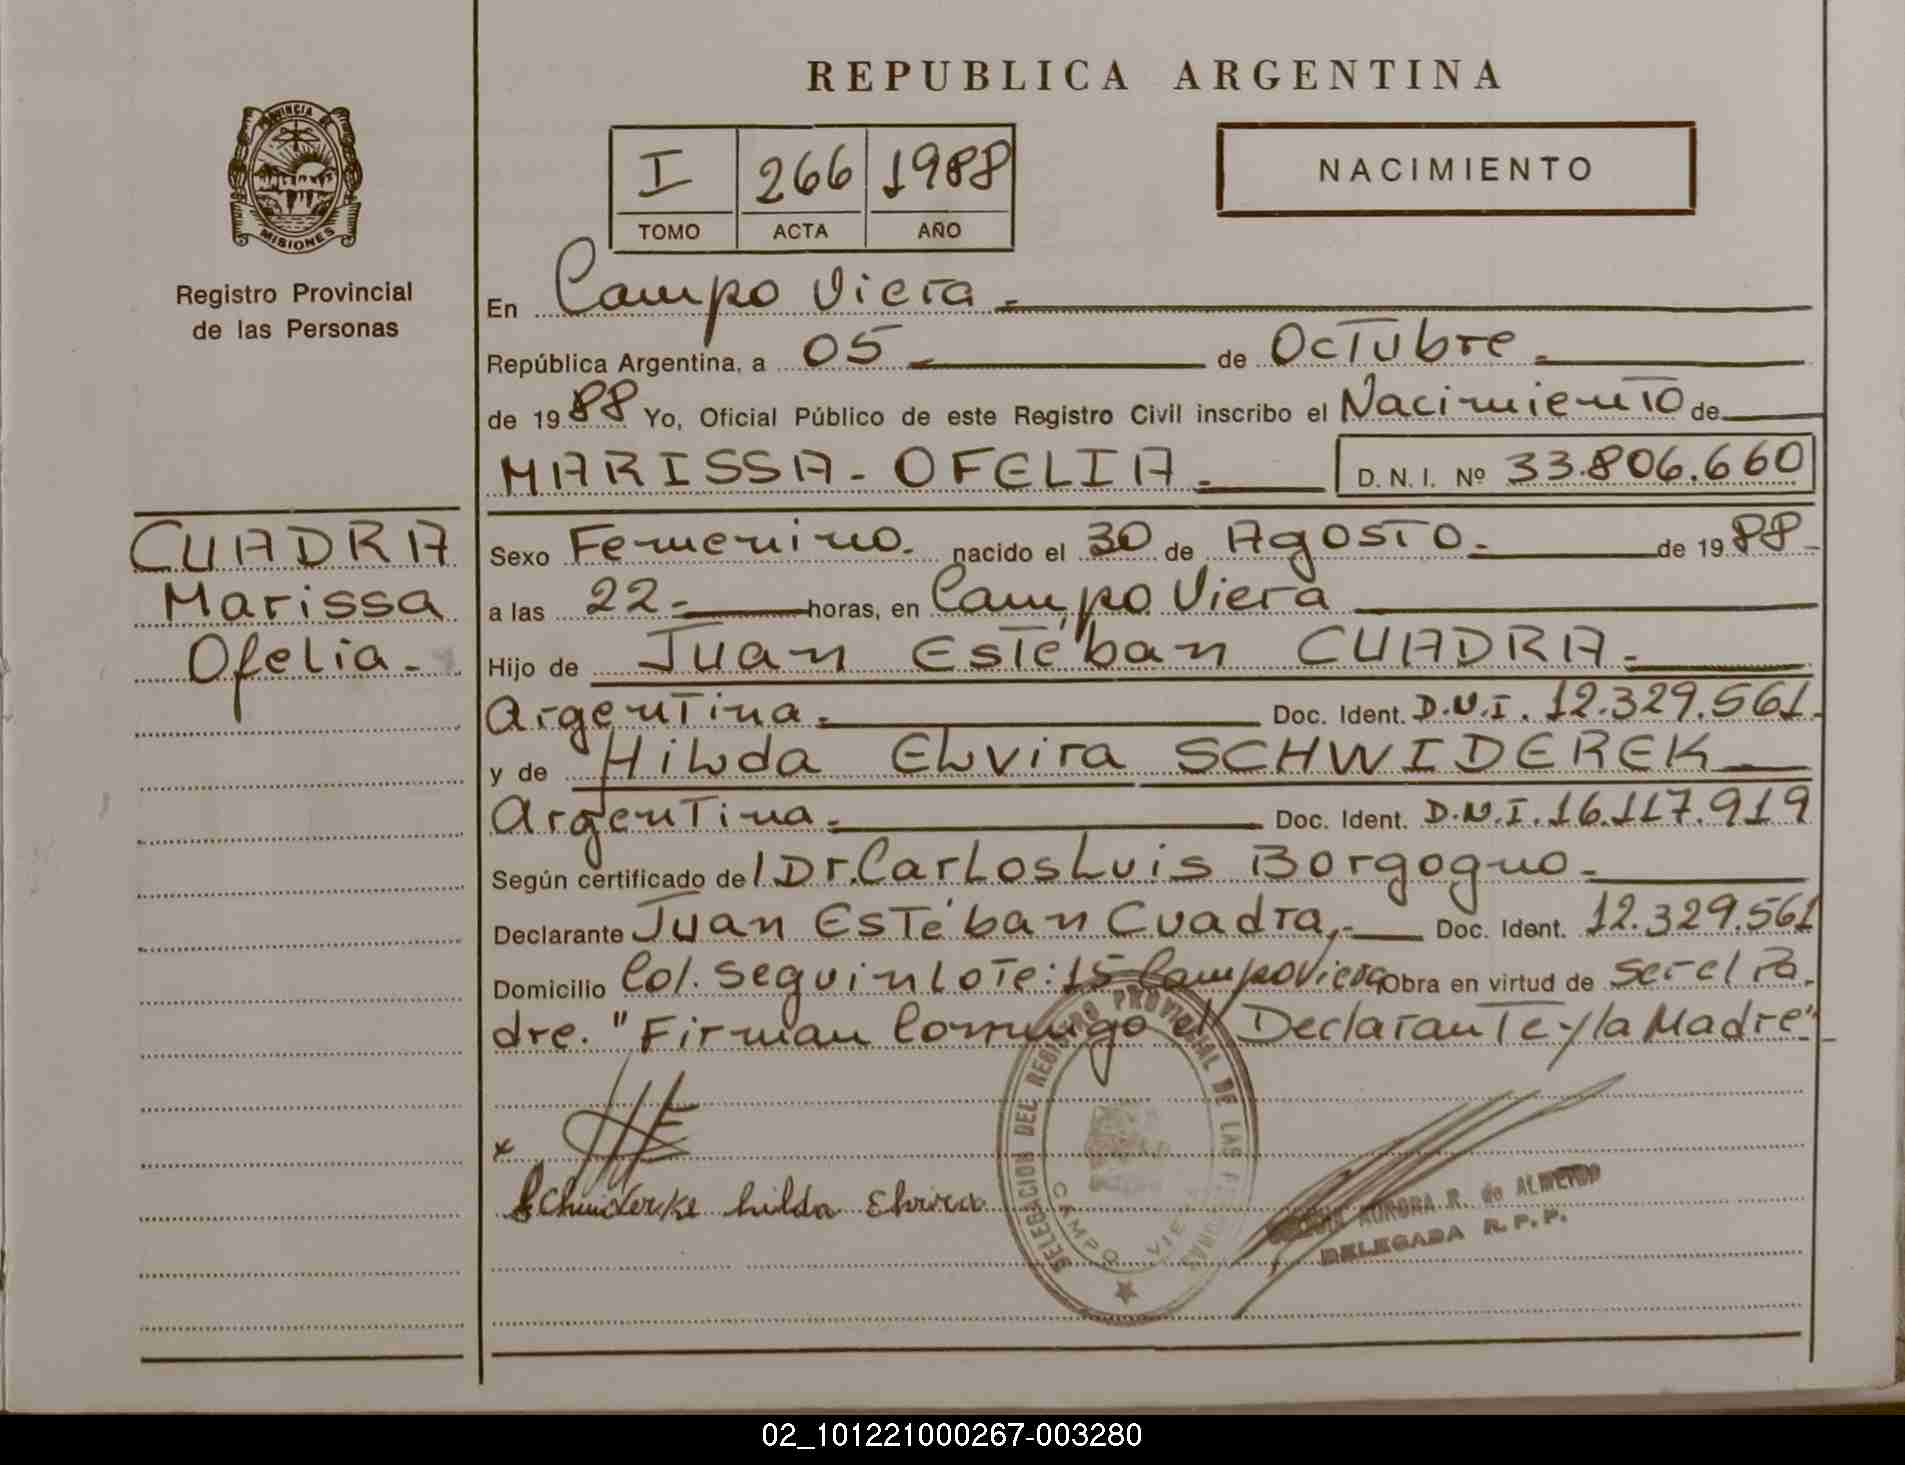 REPUBLICA ARGENTINA
PROVINCIA DE
MISIONES
Registro Provincial
de las Personas
I 266 1988
TOMO ACTA AÑO
NACIMIENTO
En Campo Viera.-
República Argentina, a 05.- de Octubre.-
de 1988 Yo, Oficial Público de este Registro Civil inscribo el Nacimiento de
MARISSA - OFELIA.- D. N. I. Nº 33.806.660
CUADRA
Marissa
Ofelia.-
Sexo Femenino. nacido el 30 de Agosto.- de 1988.-
a las 22.- horas, en Campo Viera
Hijo de Juan Estéban CUADRA.-
Argentina.- Doc. Ident. D.N.I. 12.329.561.
y de Hilda Elvira SCHWIDEREK
Argentina.- Doc. Ident. D.N.I. 16.117.919
Según certificado del Dr. Carlos Luis Borgogno.-
Declarante Juan Estéban Cuadra,.- Doc. Ident. 12.329.561
Domicilio Col. Seguin Lote: 15 Campo Viera Obra en virtud de ser el Pa
dre. "Firman Conmigo el Declarante y la Madre".-
x
Schwiderke hilda Elvira
DELEGACION DEL REGISTRO PROVINCIAL DE LAS PERSONAS
CAMPO VIERA
AURORA R. de ALMEYDO
DELEGADA R. P. P.
02_101221000267-003280